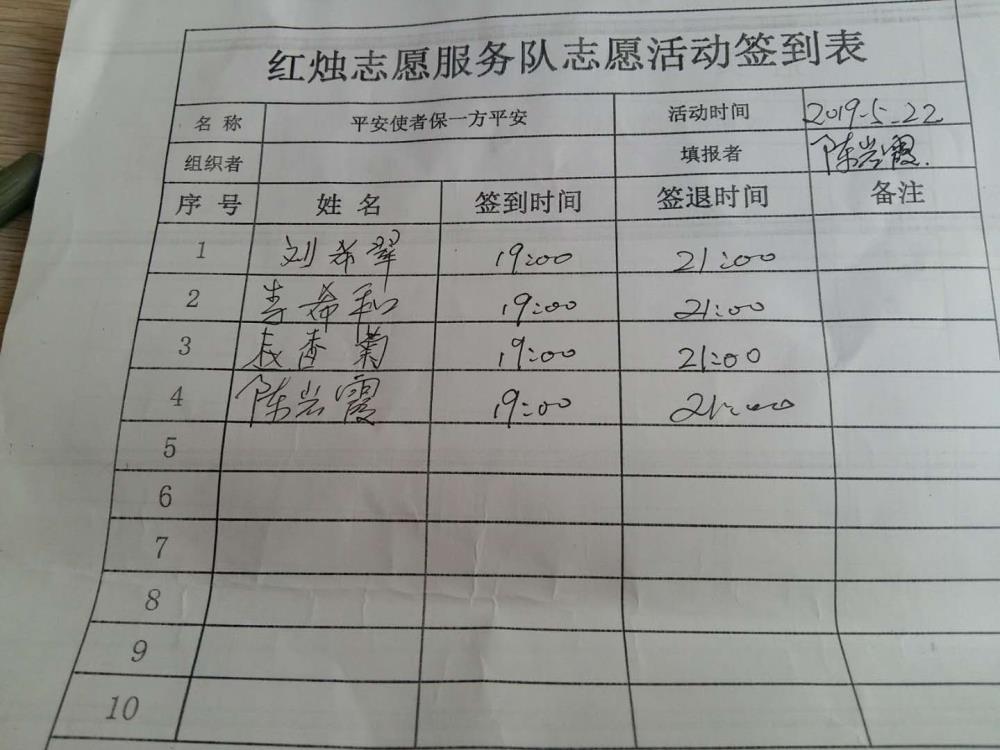 红烛志愿服务队志愿活动签到表
名 称 平安使者保一方平安 活动时间 2019-5-22
组织者 填报者 陈岩霞.
序 号 姓 名 签到时间 签退时间 备注
1 刘希翠 19:00 21:00
2 李希和 19:00 21:00
3 香菊 19:00 21:00
4 陈岩霞 19:00 21:00
5
6
7
8
9
10